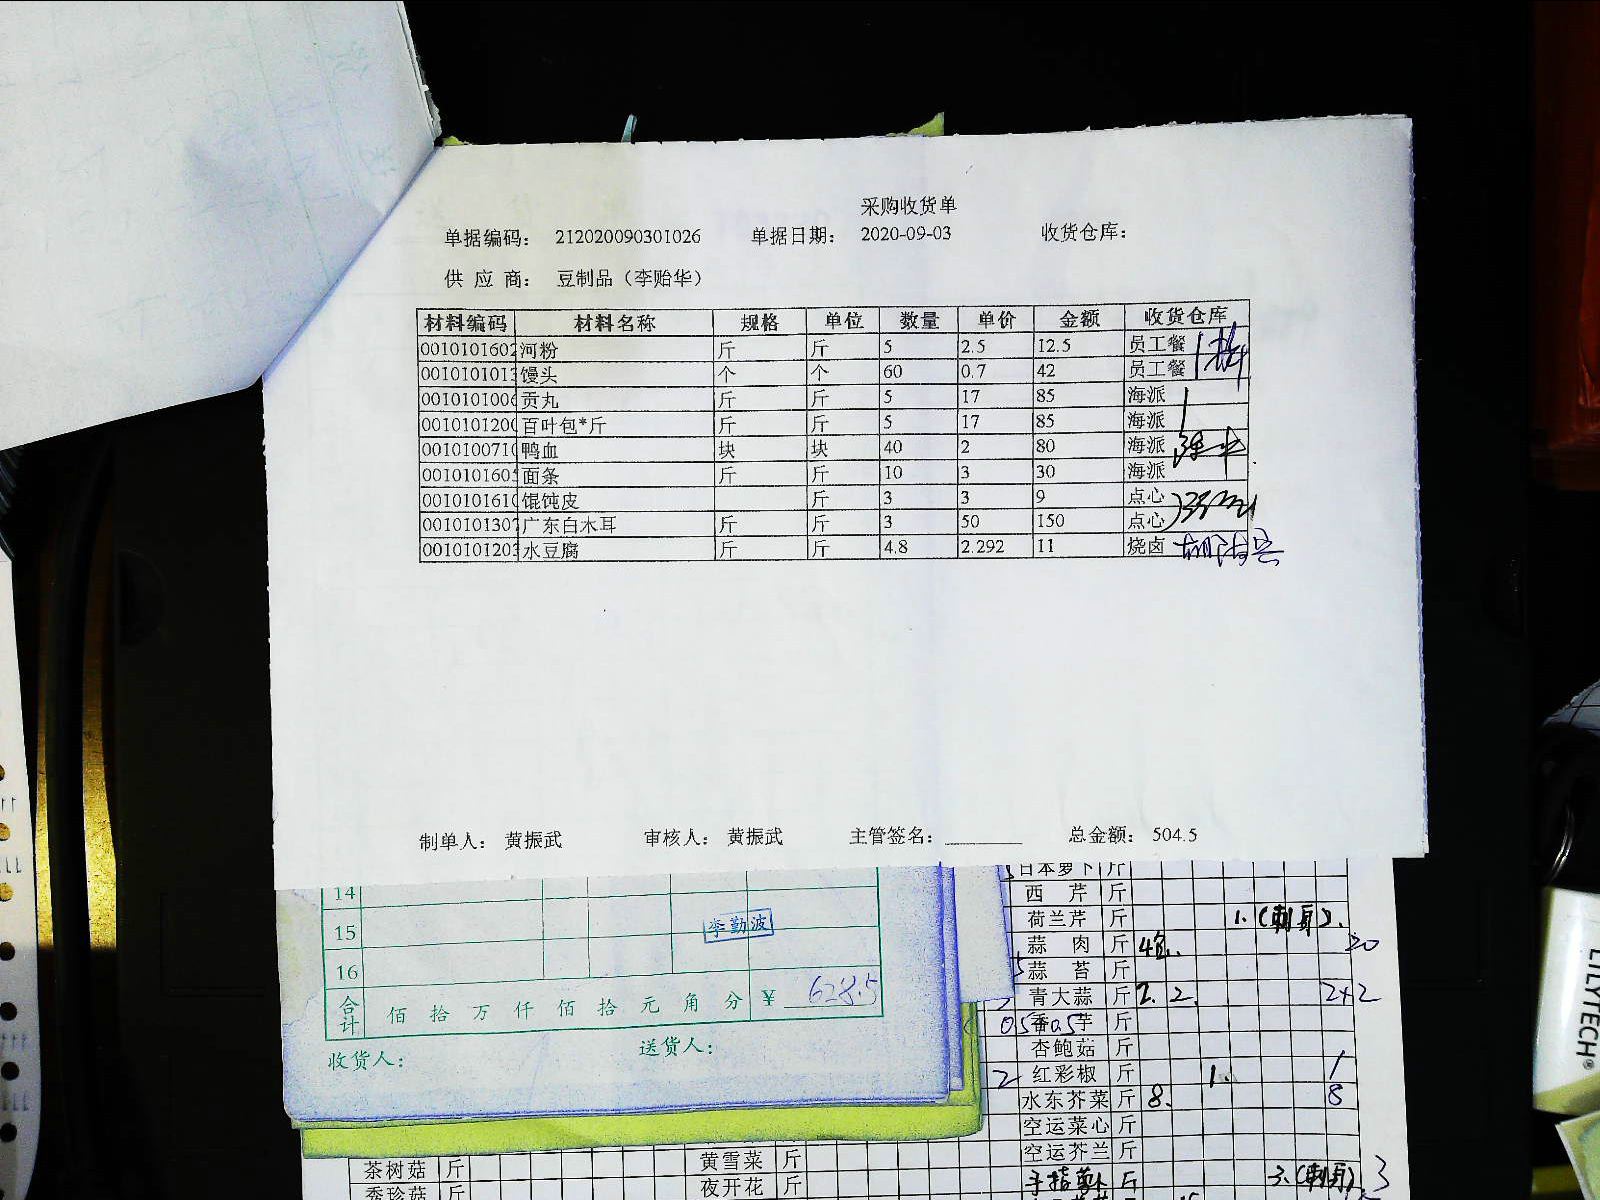 采购收货单
单据编码： 212020090301026 单据日期： 2020-09-03 收货仓库：
供 应 商： 豆制品（李贻华）
材料编码 材料名称 规格 单位 数量 单价 金额 收货仓库
0010101602 河粉 斤 斤 5 2.5 12.5 员工餐
001010101 馒头 个 个 60 0.7 42 员工餐
001010100 贡丸 斤 斤 5 17 85 海派
001010120 百叶包*斤 斤 斤 5 17 85 海派
001010071 鸭血 块 块 40 2 80 海派
001010160 面条 斤 斤 10 3 30 海派
001010161 馄饨皮 斤 3 3 9 点心
001010130 广东白木耳 斤 斤 3 50 150 点心
001010120 水豆腐 斤 斤 4.8 2.292 11 烧卤
制单人： 黄振武 审核人： 黄振武 主管签名： 总金额： 504.5
14
15 李勤波
16
合计 佰 拾 万 仟 佰 拾 元 角 分 ¥ 628.5
收货人： 送货人：
日本萝卜 斤
西 芹 斤
荷兰芹 斤 1.(刺身).
蒜 肉 斤 20
蒜 苔 斤
青大蒜 斤 2. 2. 2+2
芋 斤
杏鲍菇 斤
2 红彩椒 斤 1. 1
水东芥菜 斤 8. 8
空运菜心 斤
空运芥兰 斤
手指萝卜 斤 3.(刺身) 3
茶树菇 斤 黄雪菜 斤
秀珍菇 斤 夜开花 斤
LILYTECH®